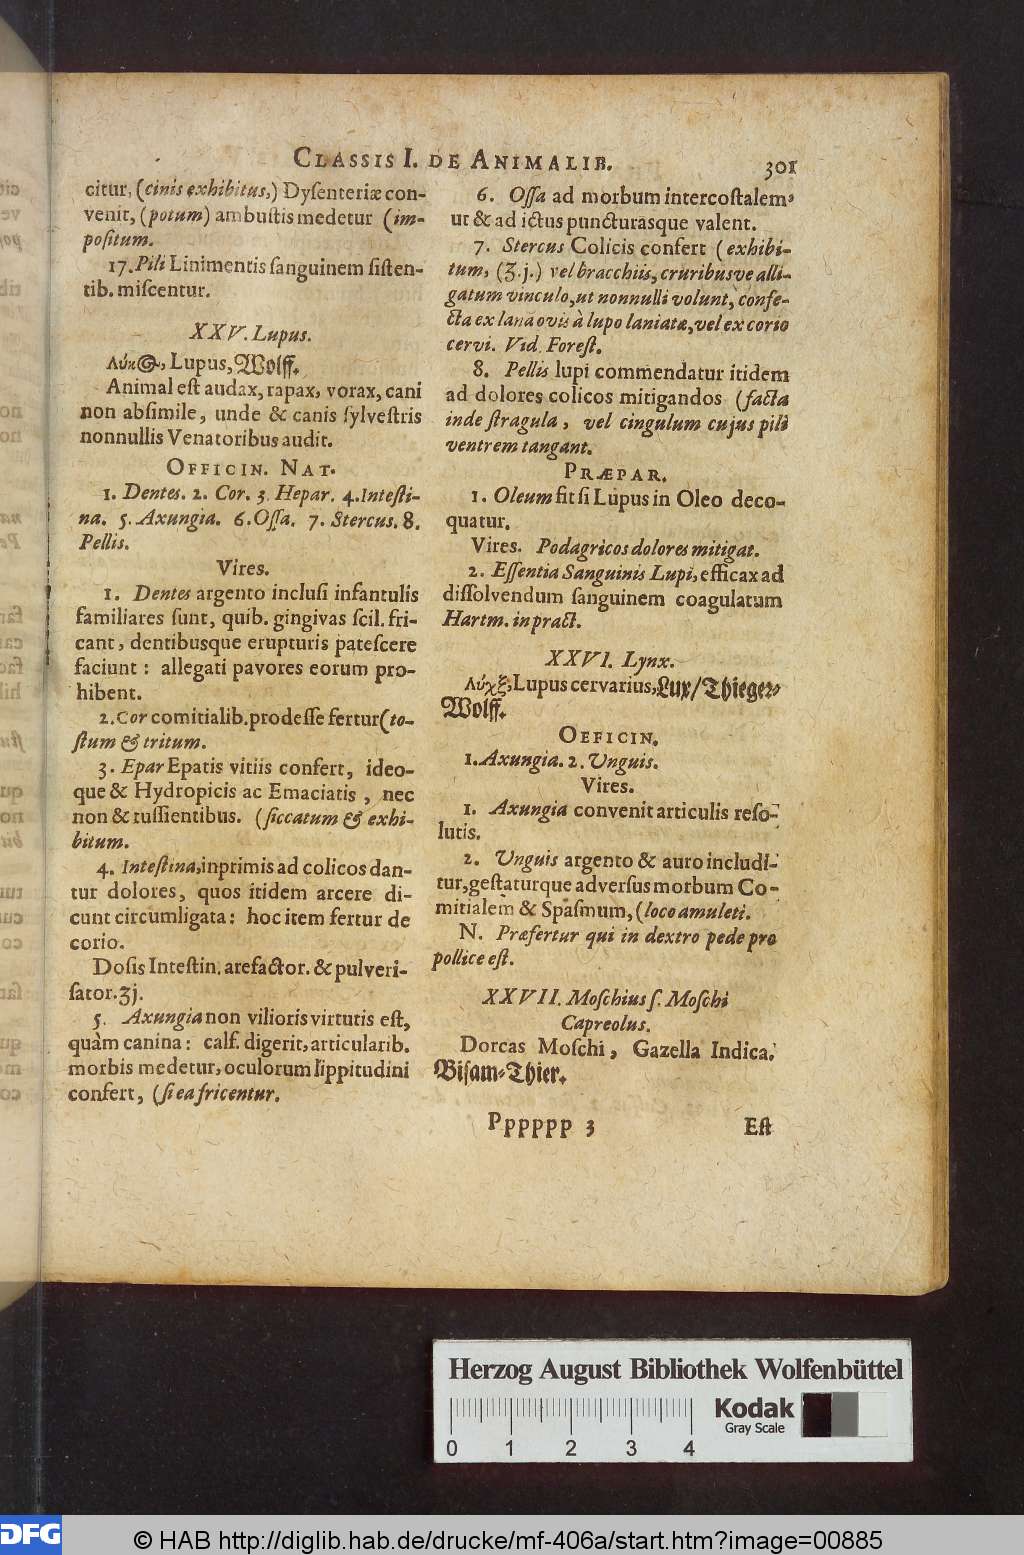 CLASSIS I. DE ANIMALIB. 301
citur, (cinis exhibitus,) Dyſenteriæ con-
venit, (potum) ambuſtis medetur (im-
poſitum.
17. Pili Linimentis ſanguinem ſiſten-
tib. miſcentur.
XXV. Lupus.
Λύκ, Lupus, Wolff.
Animal eſt audax, rapax, vorax, cani
non abſimile, unde & canis ſylveſtris
nonnullis Venatoribus audit.
OFFICIN. NAT.
1. Dentes. 2. Cor. 3. Hepar. 4. Inteſti-
na. 5. Axungia. 6. Oſſa. 7. Stercus. 8.
Pellis.
Vires.
1. Dentes argento incluſi infantulis
familiares ſunt, quib. gingivas ſcil. fri-
cant, dentibusque erupturis pateſcere
faciunt: allegati pavores eorum pro-
hibent.
2. Cor comitialib. prodeſſe fertur (to-
ſtum & tritum.
3. Epar Epatis vitiis confert, ideo-
que & Hydropicis ac Emaciatis, nec
non & tuſſientibus. (ſiccatum & exhi-
bitum.
4. Inteſtina, inprimis ad colicos dan-
tur dolores, quos itidem arcere di-
cunt circumligata: hoc item fertur de
corio.
Doſis Inteſtin. arefactor. & pulveri-
ſator. ʒj.
5. Axungia non vilioris virtutis eſt,
quàm canina: calf. digerit, articularib.
morbis medetur, oculorum lippitudini
confert, (ſi ea fricentur.
6. Oſſa ad morbum intercoſtalem,
ut & ad ictus puncturasque valent.
7. Stercus Colicis confert (exhibi-
tum, (ʒ.j.) vel bracchiis, cruribusve alli-
gatum vinculo, ut nonnulli volunt, confe-
cta ex lana ovis à lupo laniatæ, vel ex corio
cervi. Vid. Foreſt.
8. Pellis lupi commendatur itidem
ad dolores colicos mitigandos (facta
inde ſtragula, vel cingulum cujus pili
ventrem tangant.
PRÆPAR.
1. Oleum fit ſi Lupus in Oleo deco-
quatur.
Vires. Podagricos dolores mitigat.
2. Eſſentia Sanguinis Lupi, efficax ad
diſſolvendum ſanguinem coagulatum
Hartm. in pract.
XXVI. Lynx.
Λύχξ, Lupus cervarius, Lux/Thieger-
Wolff.
OFFICIN.
1. Axungia. 2. Unguis.
Vires.
1. Axungia convenit articulis reſo-
lutis.
2. Unguis argento & auro includi-
tur, geſtaturque adverſus morbum Co-
mitialem & Spaſmum, (loco amuleti.
N. Præfertur qui in dextro pede pro
pollice eſt.
XXVII. Moſchius ſ. Moſchi
Capreolus.
Dorcas Moſchi, Gazella Indica.
Biſam-Thier.
Pppppp 3 Eſt
Herzog August Bibliothek Wolfenbüttel
0 1 2 3 4
Kodak
Gray Scale
DFG
© HAB http://diglib.hab.de/drucke/mf-406a/start.htm?image=00885